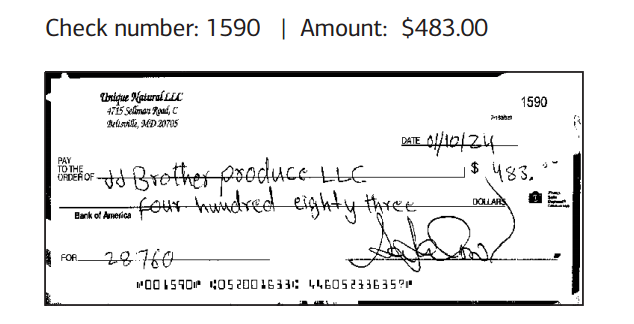 Check number: 1590 | Amount: $483.00
Unique Natural LLC
1590
4715 Sellman Road, C
Beltsville, MD 20705
DATE 01/10/24
PAY
TO THE
ORDER OF JJ Brother produce LLC $ 483.00
four hundred eighty three DOLLARS
Bank of America
FOR 28760
⑈001590⑈ ⑆052001633⑆ 446052336359⑈